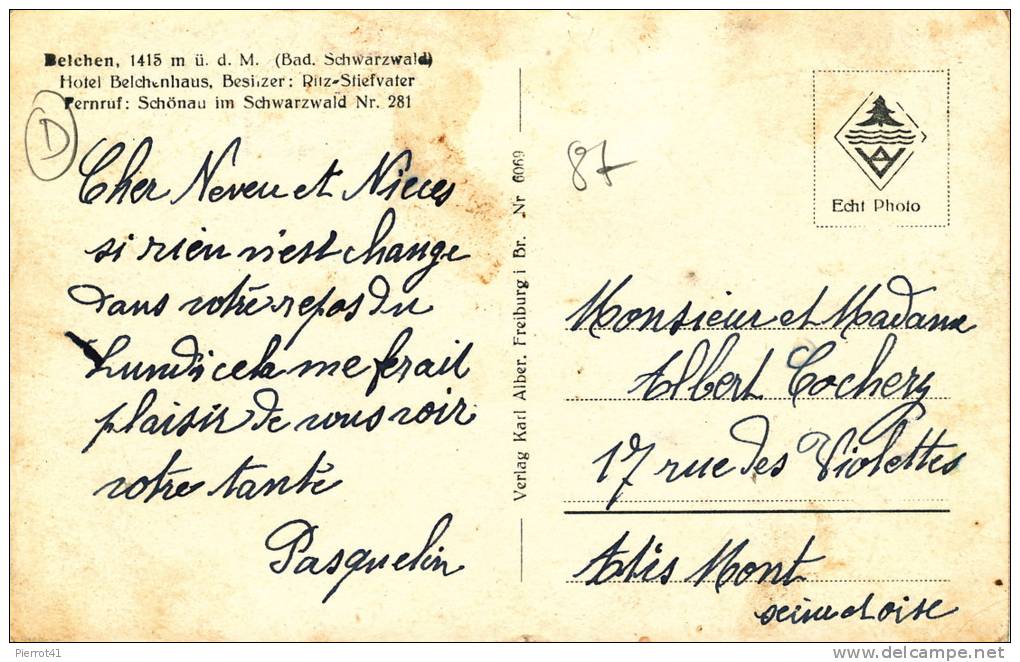 Belchen, 1415 m ü. d. M. (Bad. Schwarzwald)
Hotel Belchenhaus, Besitzer: Ritz-Stiefvater
Fernruf: Schönau im Schwarzwald Nr. 281
D
Cher Neveu et Nieces
si rien n'est change
dans votre repos du
Lundi cela me ferait
plaisir de vous voir
votre tante
Pasquelin
Verlag Karl Alber. Freiburg i Br. Nr 6069
87
Echt Photo
Monsieur et Madame
Albert Cochery
17 rue des Violettes
Atis Mont
seine et Oise
Pierrot41
http://www.delcampe.net